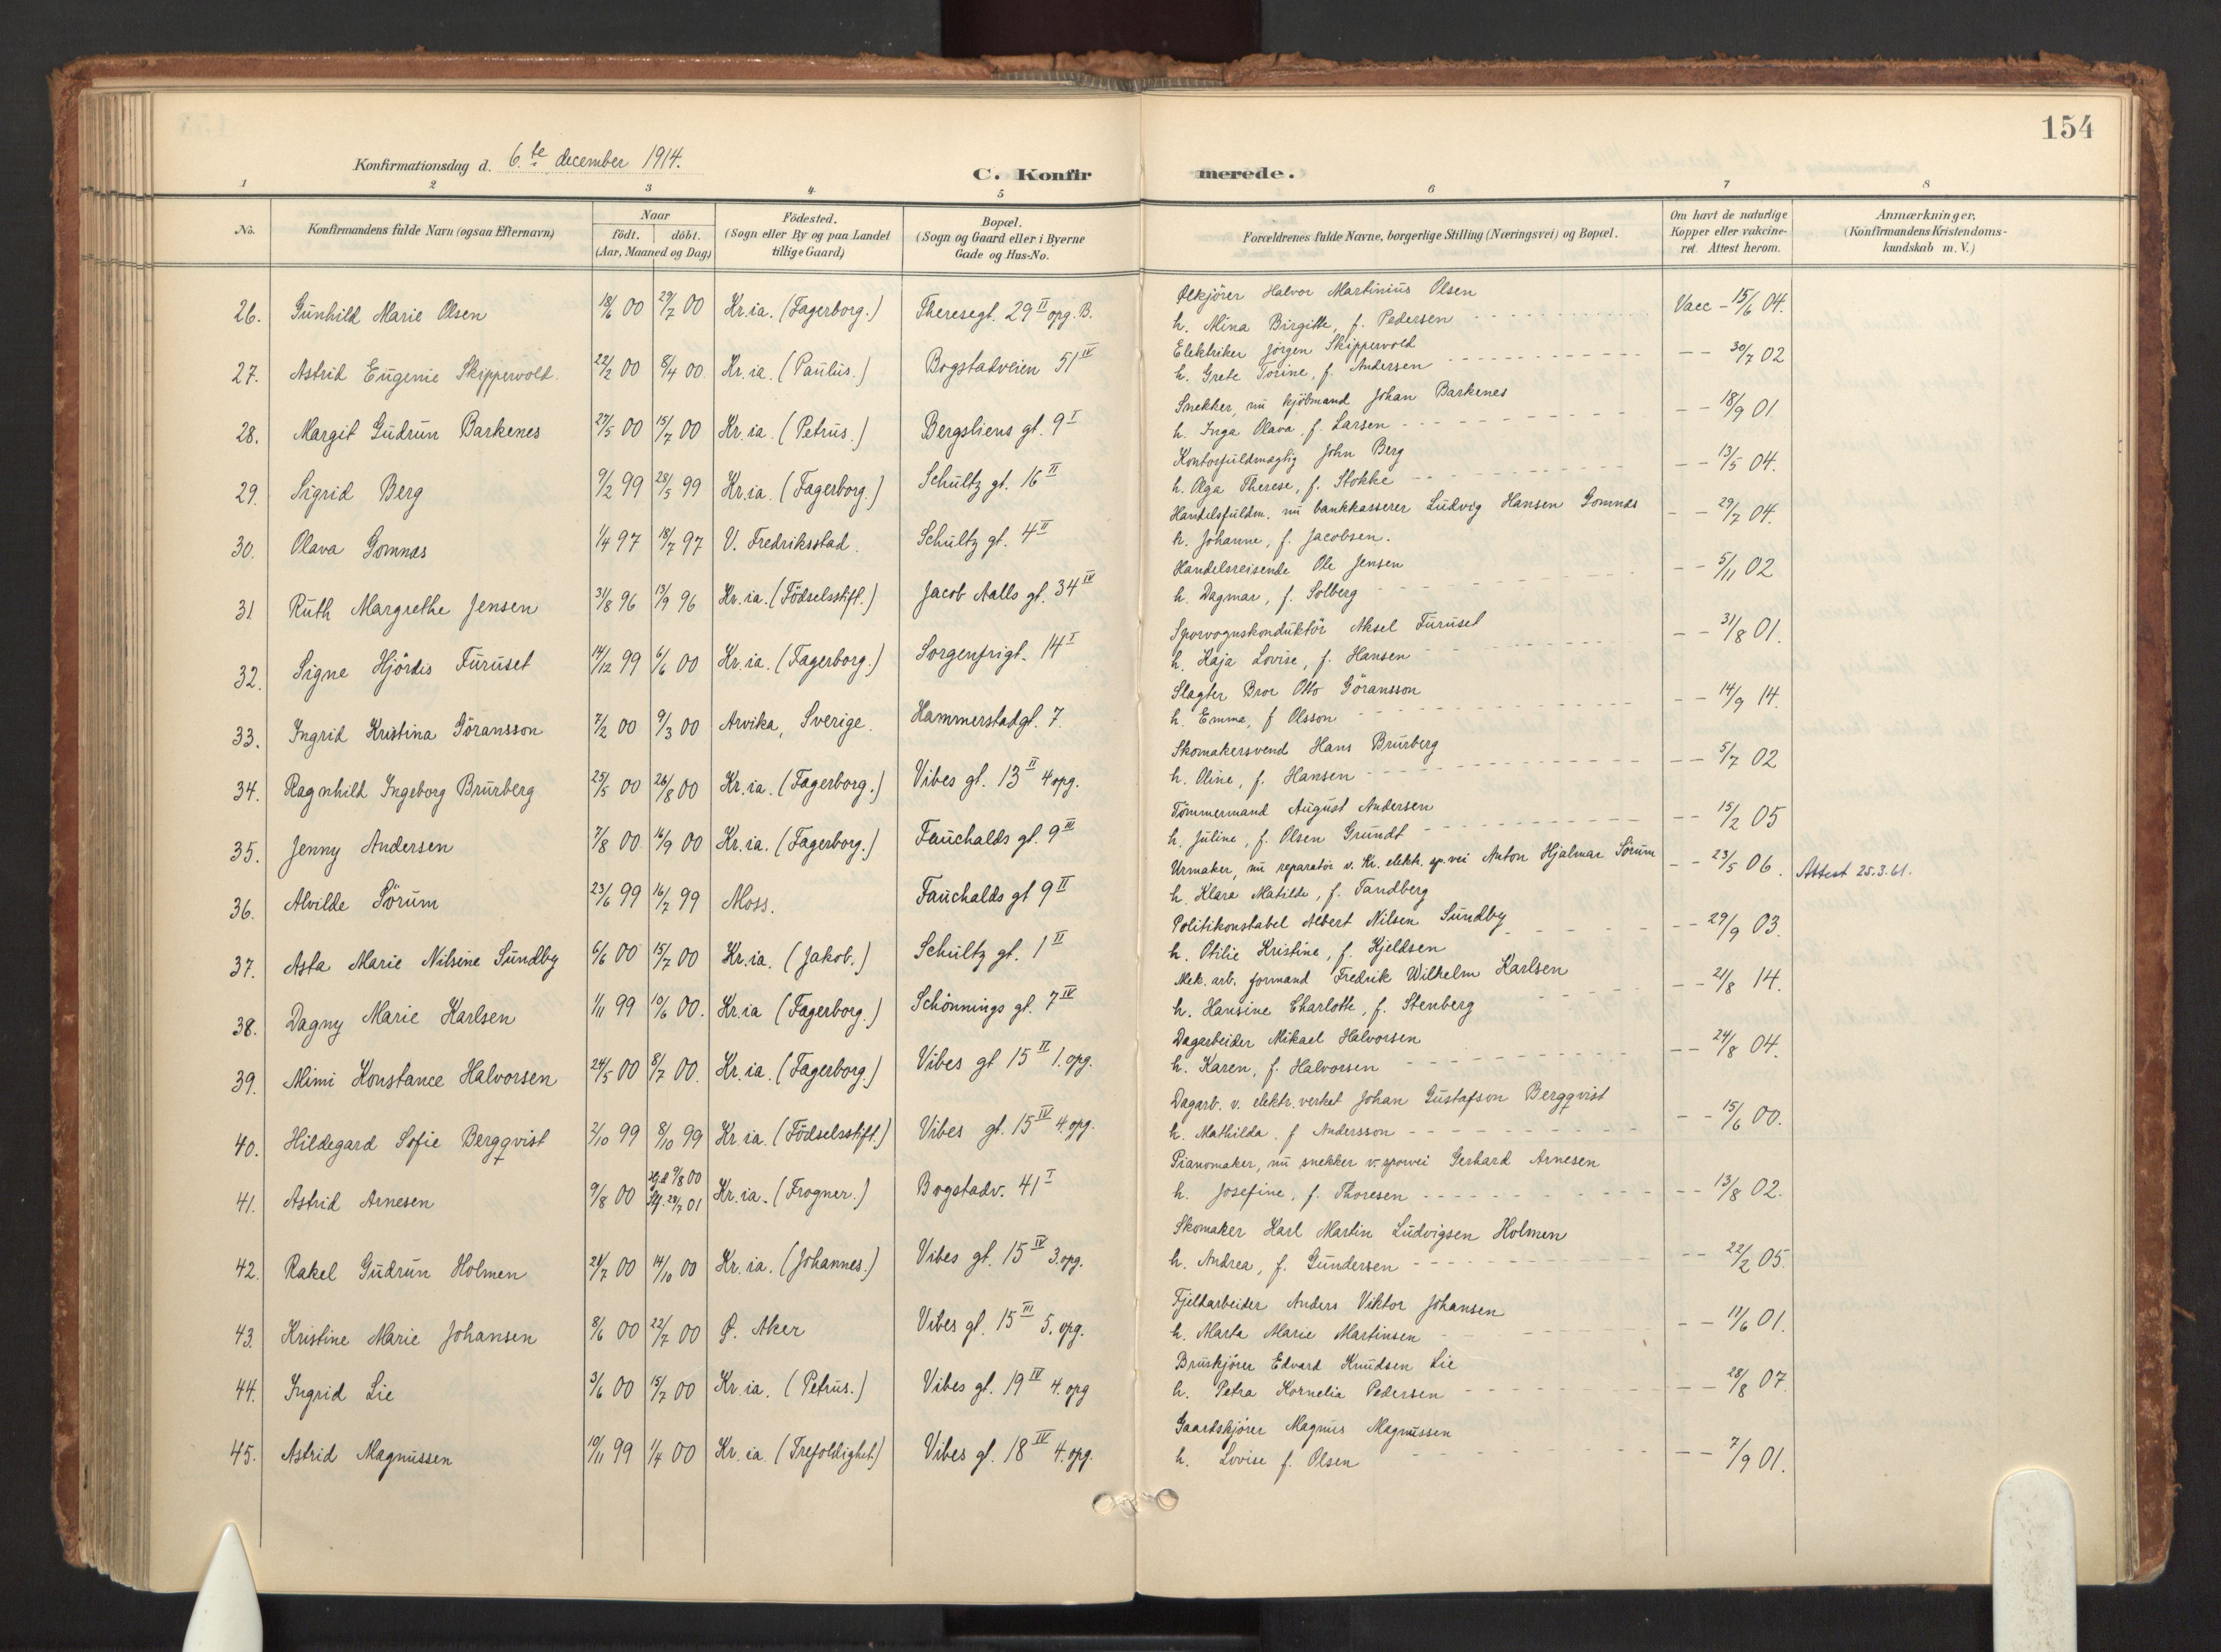 154
Konfirmationsdag d. 6.te december 1914.
C. Konfirmerede.
1 2 3 4 5 6 7 8
No.
Konfirmandens fulde Navn (ogsaa Efternavn)
Naar
födt. döbt.
(Aar, Maaned og Dag)
Födested.
(Sogn eller By og paa Landet
tillige Gaard)
Bopæl.
(Sogn og Gaard eller i Byerne
Gade og Hus-No.
Forældrenes fulde Navne, borgerlige Stilling (Næringsvei) og Bopæl.
Om havt de naturlige
Kopper eller vakcine-
ret. Attest herom.
Anmærkninger.
(Konfirmandens Kristendoms-
kundskab m. V.)
26. Gunhild Marie Olsen 18/6 00 29/7 00 Kr.ia. (Fagerborg.) Theresegt. 29 II opg. B. Ølkjörer Halvor Martinius Olsen Vacc - 15/6 04.
h. Mina Birgitte, f. Pedersen
27. Astrid Eugenie Skippervold. 22/2 00 8/4 00. Kr.ia. (Paulus.) Bogstadveien 51 IV Elektriker Jörgen Skippervold - - 30/7 02
h. Grete Torine, f. Andersen
28. Margit Gudrun Barkenes 27/5 00 15/7 00 Kr.ia. (Petrus.) Bergsliens gt. 9 I Snekker, nu kjöbmand Johan Barkenes - - 18/9 01.
h. Inga Olava, f. Larsen
29. Sigrid Berg 9/2 99 28/5 99 Kr.ia. (Fagerborg.) Schultz gt. 16 II Kontorfuldmægtig John Berg - - 13/5 04.
h. Olga Therese, f. Stokke
30. Olava Gomnæs 1/4 97 18/7 97 V. Fredriksstad. Schultz gt. 4 II Handelsfuldm. nu bankkasserer Ludvig Hansen Gomnæs - - 29/7 04.
h. Johanne, f. Jacobsen.
31 Ruth Margrethe Jensen 31/8 96 13/9 96 Kr.ia. (Födselsstift.) Jacob Aalls gt. 34 IV Handelsreisende Ole Jensen - - 5/11 02
h. Dagmar, f. Solberg
32. Signe Hjördis Furuset 14/12 99 6/6 00 Kr.ia. (Fagerborg.) Sorgenfrigt. 14 I Sporvognskonduktör Aksel Furuset - - 31/8 01.
h. Kaja Lovise, f. Hansen
33. Ingrid Kristina Göransson 7/2 00 9/3 00 Arvika, Sverige. Hammerstadgt. 7. Slagter Bror Otto Göransson - - 14/9 14.
h. Emma, f Olsson
34. Ragnhild Ingeborg Brurberg 25/5 00 26/8 00 Kr.ia. (Fagerborg.) Vibes gt. 13 II 4 opg. Skomakersvend Hans Brurberg - - 5/7 02
h. Oline, f. Hansen
35. Jenny Andersen 7/8 00 16/9 00 Kr.ia. (Fagerborg.) Fauchalds gt. 9 III Tömmermand August Andersen - - 15/2 05
h. Juline, f. Olsen Grundt
36. Alvilde Sörum 23/6 99 16/7 99 Moss. Fauchalds gt 9 II Urmaker, nu reparatör v. Kr. elektr. sp.vei Anton Hjalmar Sörum - - 23/5 06. Attest 25.3.61.
h. Klara Matilde, f. Tandberg
37. Asta Marie Nilsine Sundby 6/6 00 15/7 00 Kr.ia. (Jakob.) Schultz gt. 1 II Politikonstabel Albert Nilsen Sundby - - 29/9 03.
h. Otilie Kristine, f. Kjeldsen
38. Dagny Marie Karlsen 1/11 99 10/6 00. Kr.ia (Fagerborg.) Schönnings gt. 7 IV Mek. arb. formand Fredrik Wilhelm Karlsen - - 21/8 14.
h. Hansine Charlotte, f. Stenberg
39. Mimi Konstance Halvorsen 24/5 00 8/7 00. Kr.ia. (Fagerborg.) Vibes gt 15 II 1. opg. Dagarbeider Mikael Halvorsen - - 24/8 04.
h. Karen, f. Halvorsen
40. Hildegard Sofie Bergqvist 2/10 99 8/10 99 Kr.ia. (Födselsstift.) Vibes gt. 15 IV 4. opg. Dagarb. v. elektr. verket Johan Gustafson Bergqvist - - 15/6 00.
h. Mathilda, f Andersson
41. Astrid Arnesen 9/8 00 Hj.d 9/8 00 Stf. 29/7 01 Kr.ia. (Frogner.) Bogstadv. 41 I Pianomaker, nu snekker v. sporvei Gerhard Arnesen - - 13/8 02.
h. Josefine, f. Thoresen
42. Rakel Gudrun Holmen 21/7 00 14/10 00 Kr.ia. (Johannes.) Vibes gt. 15 IV 3. opg. Skomaker Karl Martin Ludvigsen Holmen - - 22/2 05.
h. Andrea, f. Gundersen
43. Kristine Marie Johansen 8/6 00 22/7 00 Ø. Aker Vibes gt. 15 III 5. opg. Fjeldarbeider Anders Viktor Johansen - - 11/6 01.
h. Marta Marie Martinsen
44. Ingrid Lie 3/6 00 15/7 00 Kr.ia. (Petrus.) Vibes gt. 19 IV 4. opg Bruskjörer Edvard Knudsen Lie - - 28/8 07.
h. Petra Kornelia Pedersen
45. Astrid Magnussen 10/11 99 1/4 00 Kr.ia. (Trefoldighet) Vibes gt. 18 IV 4. opg. Gaardskjörer Magnus Magnussen - - 7/9 01.
h. Lovise f. Olsen